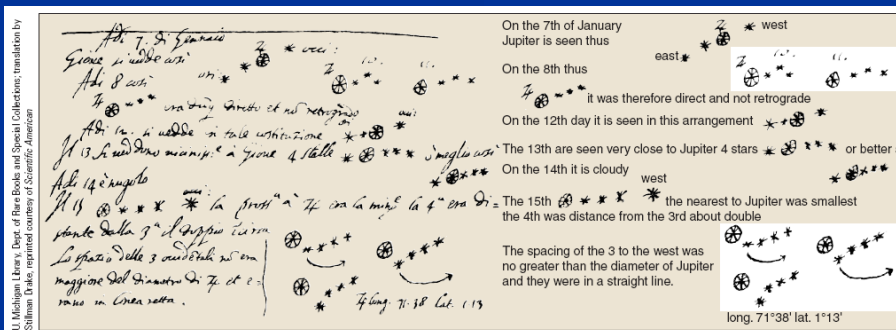 U. Michigan Library, Dept. of Rare Books and Special Collections; translation by
Stillman Drake, reprinted courtesy of Scientific American
Adi 7. di Gennaio
Giove si vedde così
Adi 8 così
era dunque diretto et non retrogrado
Adi 12. si vedde in tale costituzione
Il 13 si veddono à Giove 4 stelle ò meglio così
Adi 14 è nugolo
Il 15 la pross.a à la 4.a era di=
stante dalla 3.a il doppio
Lo spazio delle 3 occidentali nō era
maggiore del diametro di et e=
rano in linea retta.
long. 71.38 lat. 1.13
On the 7th of January
Jupiter is seen thus
east
west
On the 8th thus
it was therefore direct and not retrograde
On the 12th day it is seen in this arrangement
The 13th are seen very close to Jupiter 4 stars or better
On the 14th it is cloudy
west
The 15th the nearest to Jupiter was smallest
the 4th was distance from the 3rd about double
The spacing of the 3 to the west was
no greater than the diameter of Jupiter
and they were in a straight line.
long. 71°38' lat. 1°13'